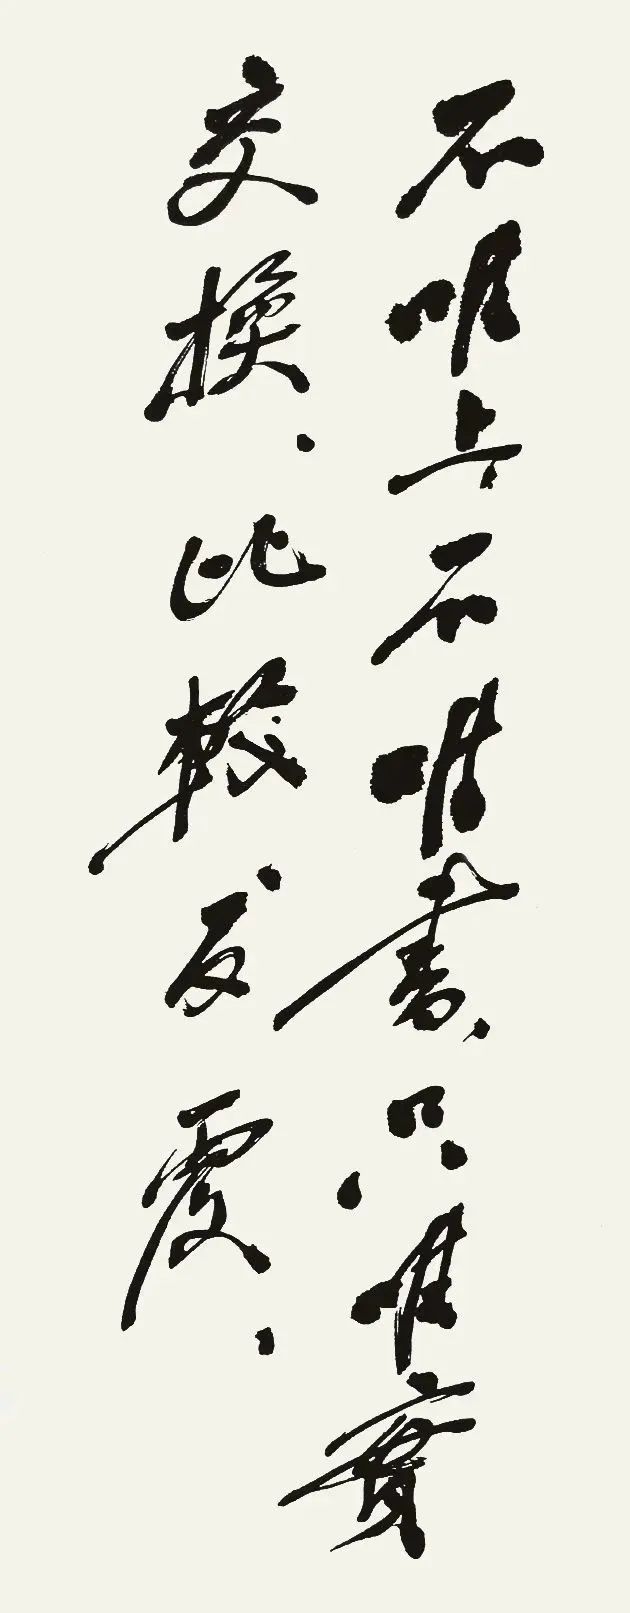 不唯上不唯書只唯實
交換、比較、反覆、